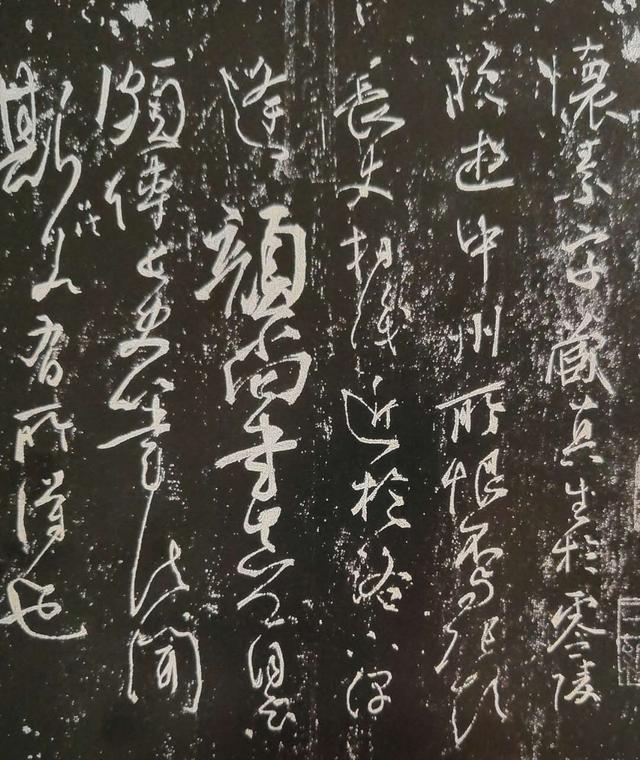 懷素字藏真生於零陵
晚遊中州所恨不與張顛
長史相識近於洛下偶
逢顏尚書真卿自云
頗傳長史筆法聞
斯法若有所得也